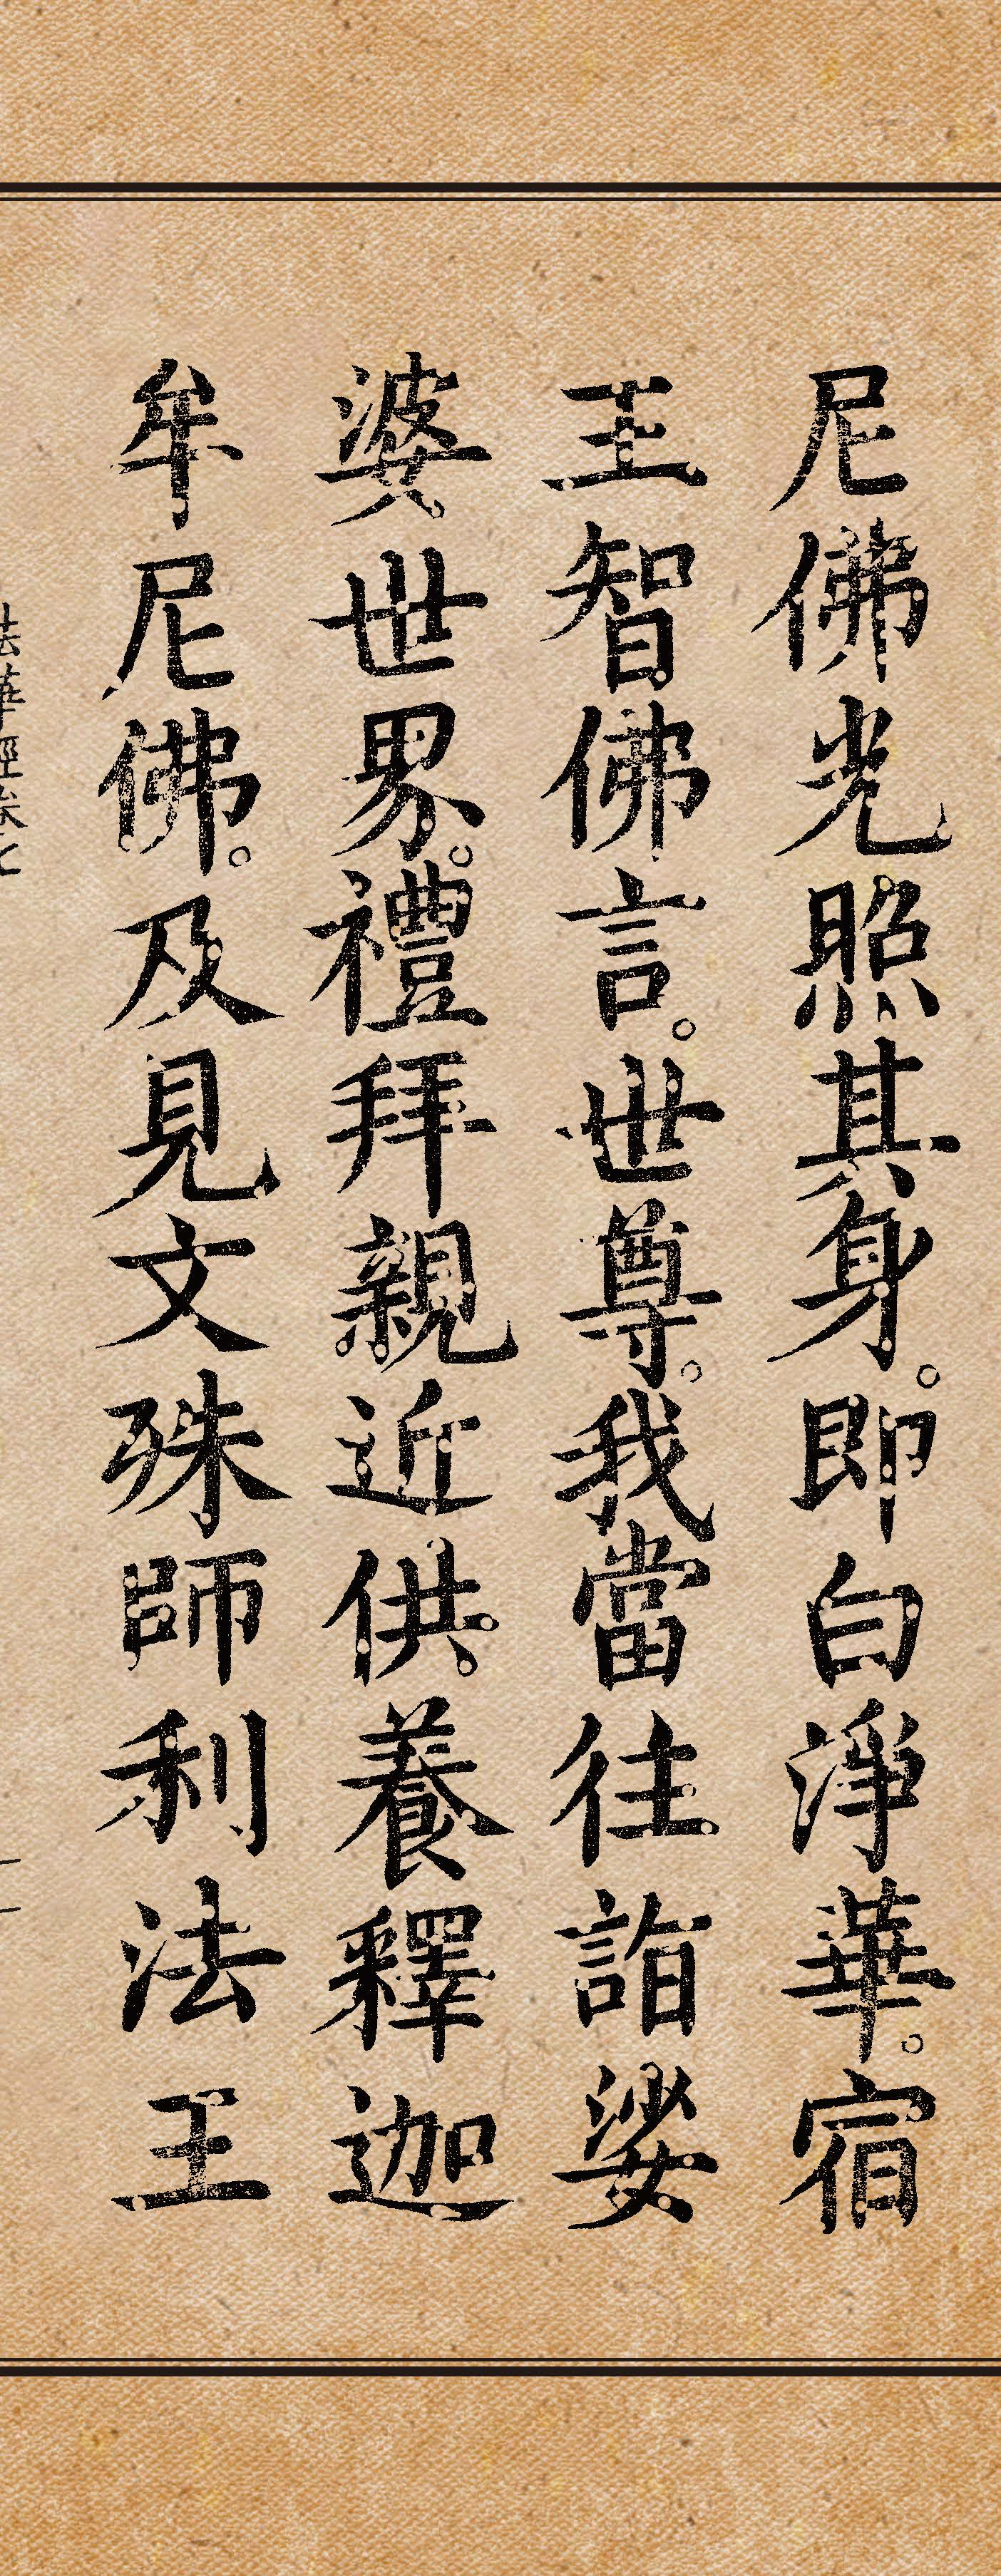 尼佛光照其身。即白淨華。宿
王智佛言。世尊。我當往詣娑
婆世界。禮拜親近供養釋迦
牟尼佛。及見文殊師利法王
法華經卷七